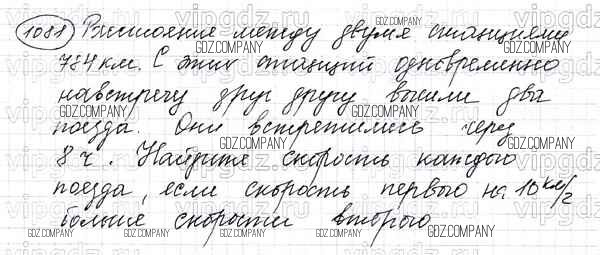 1088 Расстояние между двумя станциями
784 км. С этих станций одновременно
навстречу друг другу вышли два
поезда. Они встретились через
8 ч. Найдите скорость каждого
поезда, если скорость первого на 10 км/ч
больше скорости второго